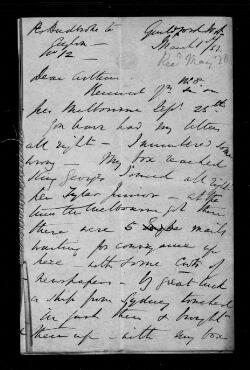 Guildford W.A.
March 1st/
Recd May 20
Dear Arthur
Received yr No 8
per Melbourne Sep 25th
You have had my letters
all right - I numbered some
wrong - My box reached
King Georges Sound all right
per Tyler Junior - at the
time the Melbourne got there
there were 6 mails
waiting for conveyance up
here - with some cwts of
newspapers - By great luck
a ship from Sydney touched
in just then & brought
them up - with my box